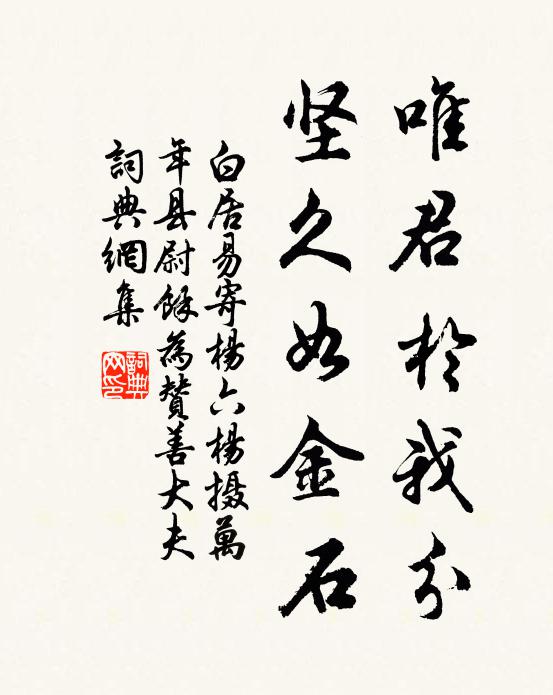 唯君於我分
坚久如金石
白居易寄楊六楊摄萬
年县尉餘為贊善大夫
詞典網集
詞典网印